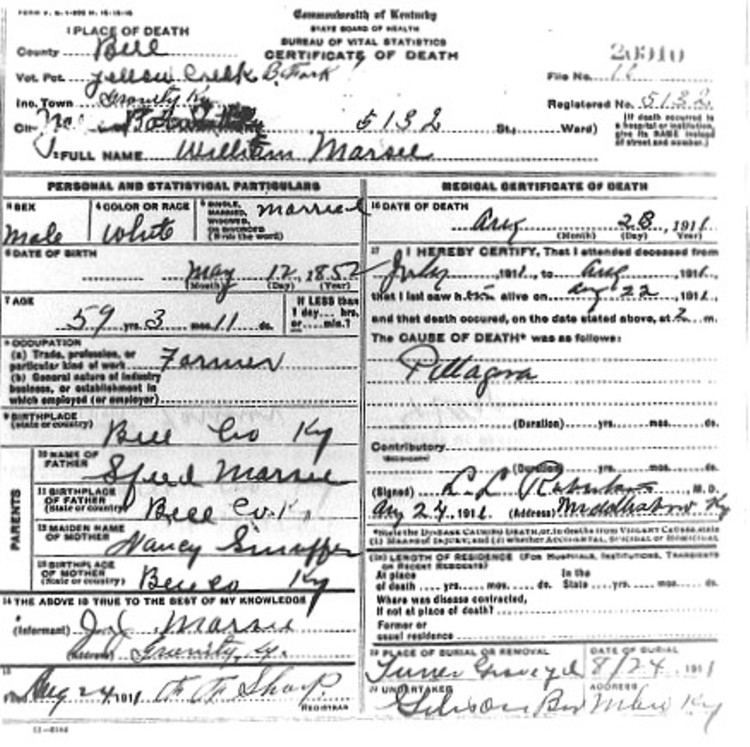 Commonwealth of Kentucky
STATE BOARD OF HEALTH
BUREAU OF VITAL STATISTICS
CERTIFICATE OF DEATH
1 PLACE OF DEATH
County Bell
Vot. Pct. Yellow Creek B. Fork
Inc. Town
5132 St., Ward)
File No.
Registered No. 5132
(If death occurred in a hospital or institution, give its NAME instead of street and number.)
2 FULL NAME William Marsee
PERSONAL AND STATISTICAL PARTICULARS
3 SEX
Male
4 COLOR OR RACE
White
5 SINGLE, MARRIED, WIDOWED, OR DIVORCED (Write the word)
Married
6 DATE OF BIRTH
May 12, 1852
(Month) (Day) (Year)
7 AGE
59 yrs. 3 mos. 11 ds.
If LESS than 1 day.... hrs. or.... min.?
8 OCCUPATION
(a) Trade, profession, or particular kind of work Farmer
(b) General nature of industry business, or establishment in which employed (or employer)
9 BIRTHPLACE (State or country)
Bell Co Ky
PARENTS
10 NAME OF FATHER
Speed Marsee
11 BIRTHPLACE OF FATHER (State or country)
Bell Co. K.
12 MAIDEN NAME OF MOTHER
Nancy
13 BIRTHPLACE OF MOTHER (State or country)
Bell co Ky
14 THE ABOVE IS TRUE TO THE BEST OF MY KNOWLEDGE
(Informant) Marsee
(Address)
15
Filed Aug 24, 1911 Sharp
REGISTRAR
MEDICAL CERTIFICATE OF DEATH
16 DATE OF DEATH
Aug 23, 1911
(Month) (Day) Year)
17 I HEREBY CERTIFY, That I attended deceased from
July, 1911, to Aug, 1911,
that I last saw him alive on Aug 22, 1911,
and that death occured, on the date stated above, at 2 m.
The CAUSE OF DEATH* was as follows:
(Duration) yrs. mos. ds.
Contributory
(Duration) yrs. mos. ds.
(Signed) M. D.
Aug 24, 1911 (Address) Ky
*State the DISEASE CAUSING DEATH, or, in deaths from VIOLENT CAUSES, state
(1) MEANS OF INJURY; and (2) whether ACCIDENTAL, SUICIDAL or HOMICIDAL
18 LENGTH OF RESIDENCE (FOR HOSPITALS, INSTITUTIONS, TRANSIENTS OR RECENT RESIDENTS)
At place of death yrs. mos. ds. In the State yrs. mos. ds.
Where was disease contracted,
If not at place of death?
Former or usual residence
19 PLACE OF BURIAL OR REMOVAL
Turner Graveyd
DATE OF BURIAL
8/24, 1911
20 UNDERTAKER
ADDRESS
Ky